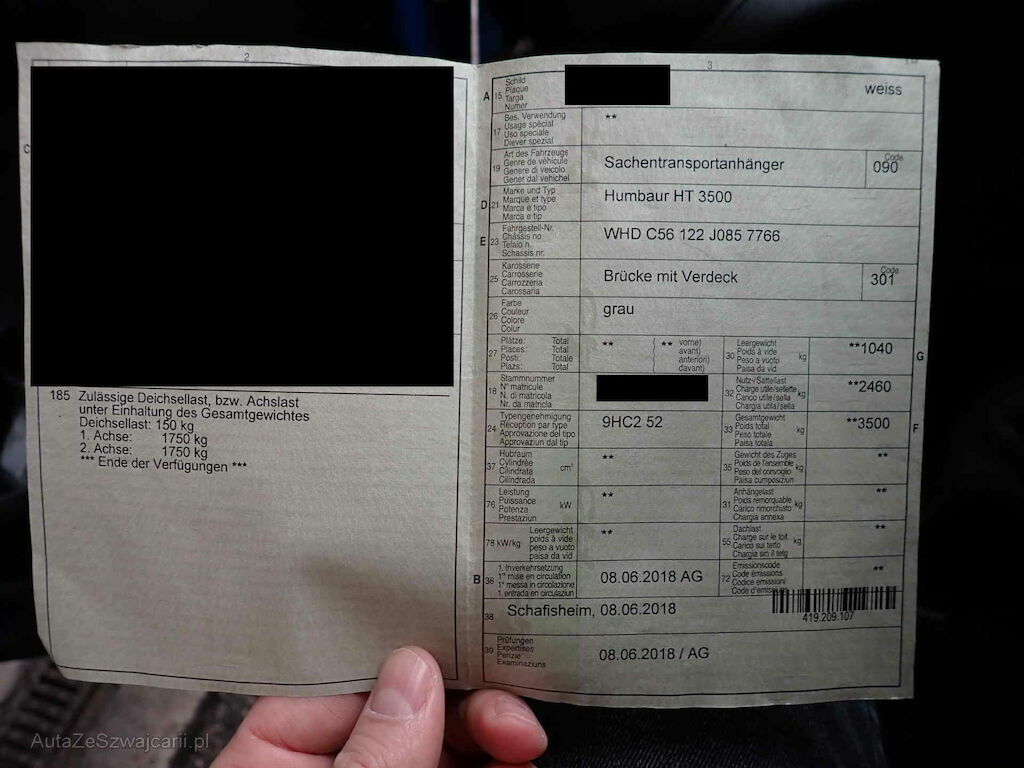 2
C
185 Zulässige Deichsellast, bzw. Achslast
unter Einhaltung des Gesamtgewichtes
Deichsellast: 150 kg
1. Achse: 1750 kg
2. Achse: 1750 kg
*** Ende der Verfügungen ***
3
A 15 Schild
Plaque
Targa
Numer
weiss
17 Bes. Verwendung
Usage spécial
Uso speciale
Diever spezial
**
19 Art des Fahrzeugs
Genre de véhicule
Genere di veicolo
Gener dal vehichel
Sachentransportanhänger
Code
090
D 21 Marke und Typ
Marque et type
Marca e tipo
Marca e tip
Humbaur HT 3500
E 23 Fahrgestell-Nr.
Châssis no
Telaio n.
Schassis nr.
WHD C56 122 J085 7766
25 Karosserie
Carrosserie
Carrozzeria
Carossaria
Brücke mit Verdeck
Code
301
26 Farbe
Couleur
Colore
Colur
grau
27 Plätze: Total
Places: Total
Posti: Totale
Plazs: Total
** (** vorne)
avant)
anteriori)
davant)
30 Leergewicht
Poids à vide
Peso a vuoto
Paisa da vid
kg
**1040
G
18 Stammnummer
N° matricule
N. di matricola
Nr. da matricla
32 Nutz-/Sattellast
Charge utile/sellette
Carico utile/sella
Chargia utila/sella
kg
**2460
24 Typengenehmigung
Réception par type
Approvazione del tipo
Approvaziun dal tip
9HC2 52
33 Gesamtgewicht
Poids total
Peso totale
Paisa totala
kg
**3500
F
37 Hubraum
Cylindrée
Cilindrata
Cilindrada
cm³
**
35 Gewicht des Zuges
Poids de l'ensemble
Peso del convoglio
Paisa cumposiziun
kg
**
76 Leistung
Puissance
Potenza
Prestaziun
kW
**
31 Anhängelast
Poids remorquable
Carico rimorchiato
Chargia annexa
kg
**
78 kW/kg Leergewicht
poids à vide
peso a vuoto
paisa da vid
**
55 Dachlast
Charge sur le toit
Carico sul tetto
Chargia sin il tetg
kg
**
B 36 1. Inverkehrsetzung
1re mise en circulation
1a messa in circolazione
1. entrada en circulaziun
08.06.2018 AG
72 Emissionscode
Code émissions
Codice emissioni
Code d'emissiuns
**
38 Schafisheim, 08.06.2018
419.209.107
39 Prüfungen
Expertises
Perizie
Examinaziuns
08.06.2018 / AG
AutaZeSzwajcarii.pl